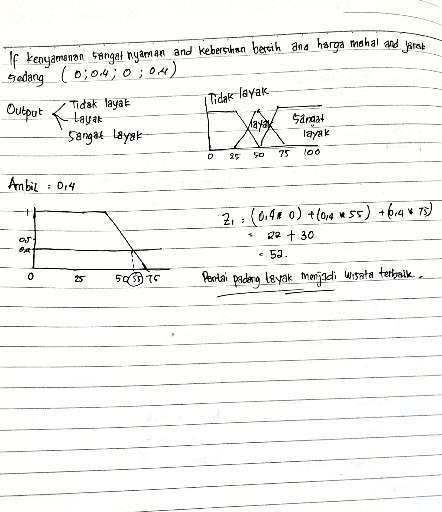 If kenyamanan sangat nyaman and kebersihan bersih and harga mahal and jarak
sedang (0; 0,4; 0; 0,4)
Output
Tidak layak
Layak
Sangat layak
Tidak layak
layak
Sangat
layak
0 25 50 75 100
Ambil : 0,4
1
0,5
0,4
0 25 50 55 75
Z1 : (0,4 * 0) + (0,4 * 55) + (0,4 * 75)
= 22 + 30
= 52.
Pantai padang layak menjadi wisata terbaik.